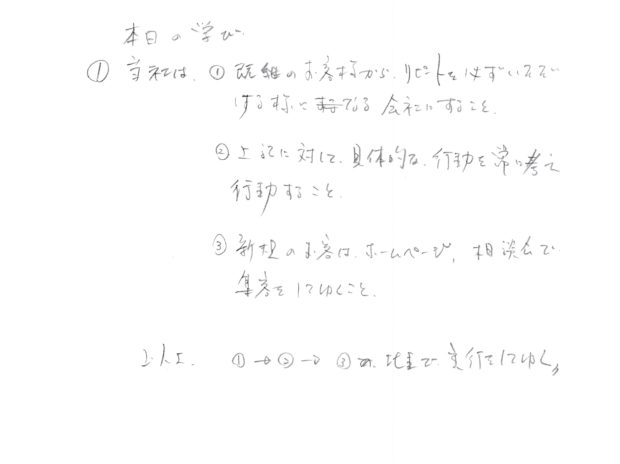 本日の学び
① 当社は、① 既組のお客様から、リピートを必ずいただ
ける様に なる 会社にすること。
② 上記に対して、具体的な、行動を常に考え
行動すること。
③ 新規のお客は、ホームページ、相談会で
集客をしてゆくこと。
以上、 ①→②→③の 比重で 実行をしてゆく。